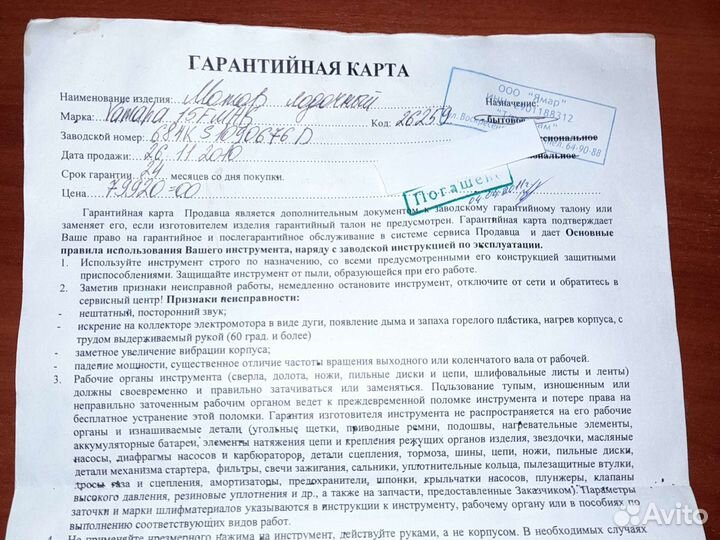 ГАРАНТИЙНАЯ КАРТА
Наименование изделия: Мотор лодочный
Марка: Yamaha 15FMHS Код: 26259
Назначение:
бытовое
Заводской номер:
Дата продажи: 26 11 2010
Срок гарантии 24 месяцев со дня покупки.
Цена 79920=00
ООО "Ямар"
64-90-88
Погашено
Гарантийная карта Продавца является дополнительным документом к заводскому гарантийному талону или
заменяет его, если изготовителем изделия гарантийный талон не предусмотрен. Гарантийная карта подтверждает
Ваше право на гарантийное и послегарантийное обслуживание в системе сервиса Продавца и дает Основные
правила использования Вашего инструмента, наряду с заводской инструкцией по эксплуатации.
1. Используйте инструмент строго по назначению, со всеми предусмотренными его конструкцией защитными
приспособлениями. Защищайте инструмент от пыли, образующейся при его работе.
2. Заметив признаки неисправной работы, немедленно остановите инструмент, отключите от сети и обратитесь в
сервисный центр! Признаки неисправности:
- нештатный, посторонний звук;
- искрение на коллекторе электромотора в виде дуги, появление дыма и запаха горелого пластика, нагрев корпуса, с
трудом выдерживаемый рукой (60 град. и более)
- заметное увеличение вибрации корпуса;
- падение мощности, существенное отличие частоты вращения выходного или коленчатого вала от рабочей.
3. Рабочие органы инструмента (сверла, долота, ножи, пильные диски и цепи, шлифовальные листы и ленты)
должны своевременно и правильно затачиваться или заменяться. Пользование тупым, изношенным или
неправильно заточенным рабочим органом ведет к преждевременной поломке инструмента и потере права на
бесплатное устранение этой поломки. Гарантия изготовителя инструмента не распространяется на его рабочие
органы и изнашиваемые детали (угольные щетки, приводные ремни, подошвы, нагревательные элементы,
аккумуляторные батареи, элементы натяжения цепи и крепления режущих органов изделия, звездочки, масляные
насосы, диафрагмы насосов и карбюраторов, детали сцепления, тормоза, шины, цепи, ножи, пильные диски,
детали механизма стартера, фильтры, свечи зажигания, сальники, уплотнительные кольца, пылезащитные втулки,
тросы газа и сцепления, амортизаторы, предохранители, шпонки, крыльчатки насосов, плунжеры, клапаны
высокого давления, резиновые уплотнения и др., а также на запчасти, предоставленные Заказчиком). Параметры
заточки и марки шлифматериалов указываются в инструкции к инструменту, рабочему органу или в пособиях по
выполнению соответствующих видов работ.
4. Не применяйте чрезмерного нажима на инструмент, действуйте руками, а не корпусом. В необходимых случаях
Avito